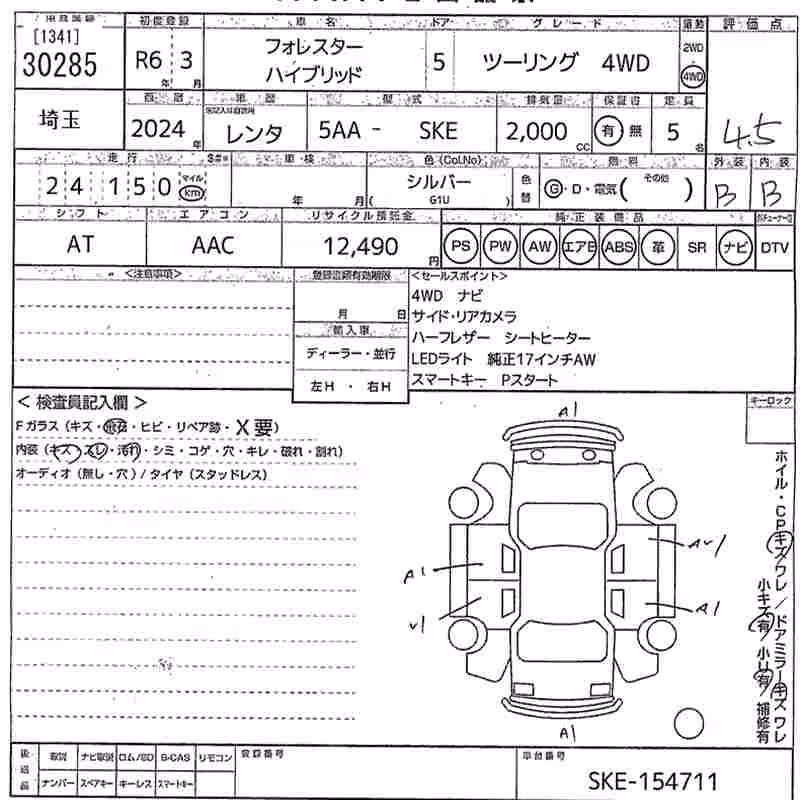 [1341]
30285
初度登録
R6 3
年 月
車名
フォレスター
ハイブリッド
ドア
5
グレード
ツーリング 4WD
2WD
4WD
評価点
4.5
埼玉
2024
年
車歴
レンタ
型式
5AA - SKE
排気量
2,000
CC
保証書
有 無
定員
5
名
外装 内装
B B
走行
24150
マイル
km
車検
年 月
色(Col.No)
シルバー
( G1U )
色替
燃料
G・D・電気( その他 )
シフト
AT
エアコン
AAC
リサイクル預託金
12,490
円
純正装備品
PS PW AW エアB ABS 革 SR ナビ DTV
<注意事項>
登録書類有効期限
月 日
輸入車
ディーラー・並行
左H・右H
<セールスポイント>
4WD ナビ
サイド・リアカメラ
ハーフレザー シートヒーター
LEDライト 純正17インチAW
スマートキー Pスタート
<検査員記入欄>
Fガラス(キズ・飛石・ヒビ・リペア跡・X要)
内装(キズ・スレ・汚れ・シミ・コゲ・穴・キレ・破れ・割れ)
オーディオ(無し・穴)/タイヤ(スタッドレス)
キーロック
A1
A1
V1
AV1
A1
A1
ホイル・CPキズワレ/ドアミラーキズワレ
小キズ有 小U有 補修有
後送品
取説 ナビ取説 ロム/SD B-CAS リモコン
ナンバー スペアキー キーレス スマートキー
登録番号
車台番号
SKE-154711